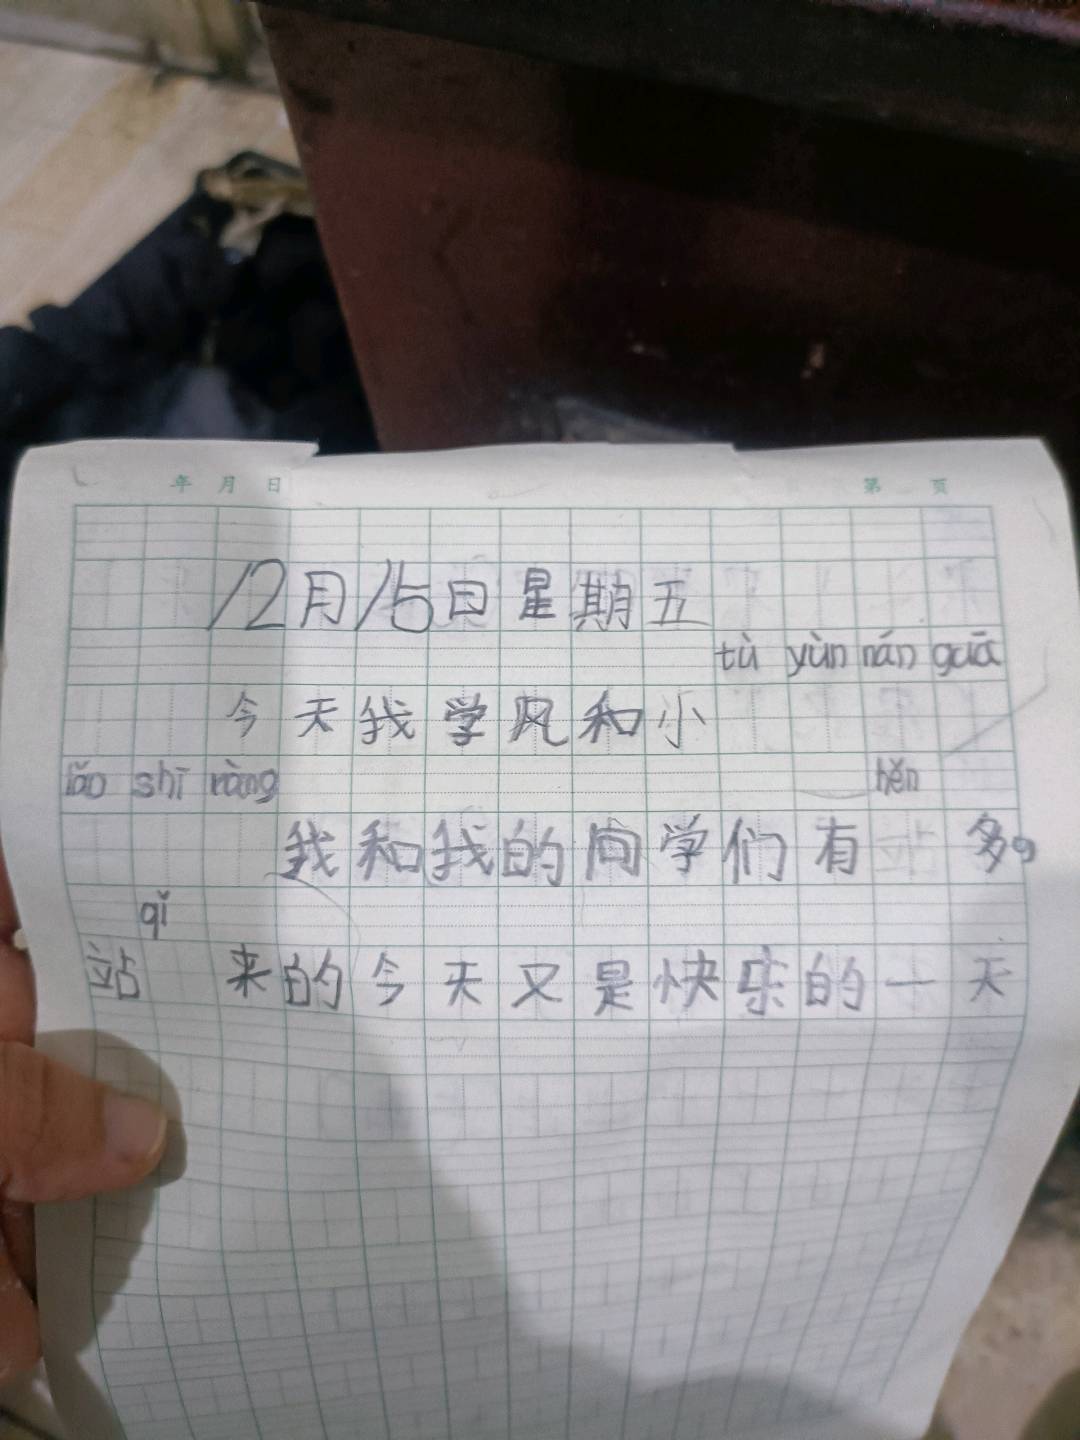 年 月 日 第 页
12月15日星期五
tù yùn nán guā
今天我学风和小
lǎo shī ràng hěn
我和我的同学们有 多。
qǐ
站 来的今天又是快乐的一天